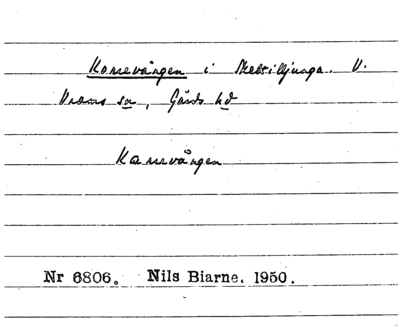 Konnevången i Skättilljunga. V.
Vrams sn, Gärds hd
Kannevången
Nr 6806. Nils Biarne. 1950.